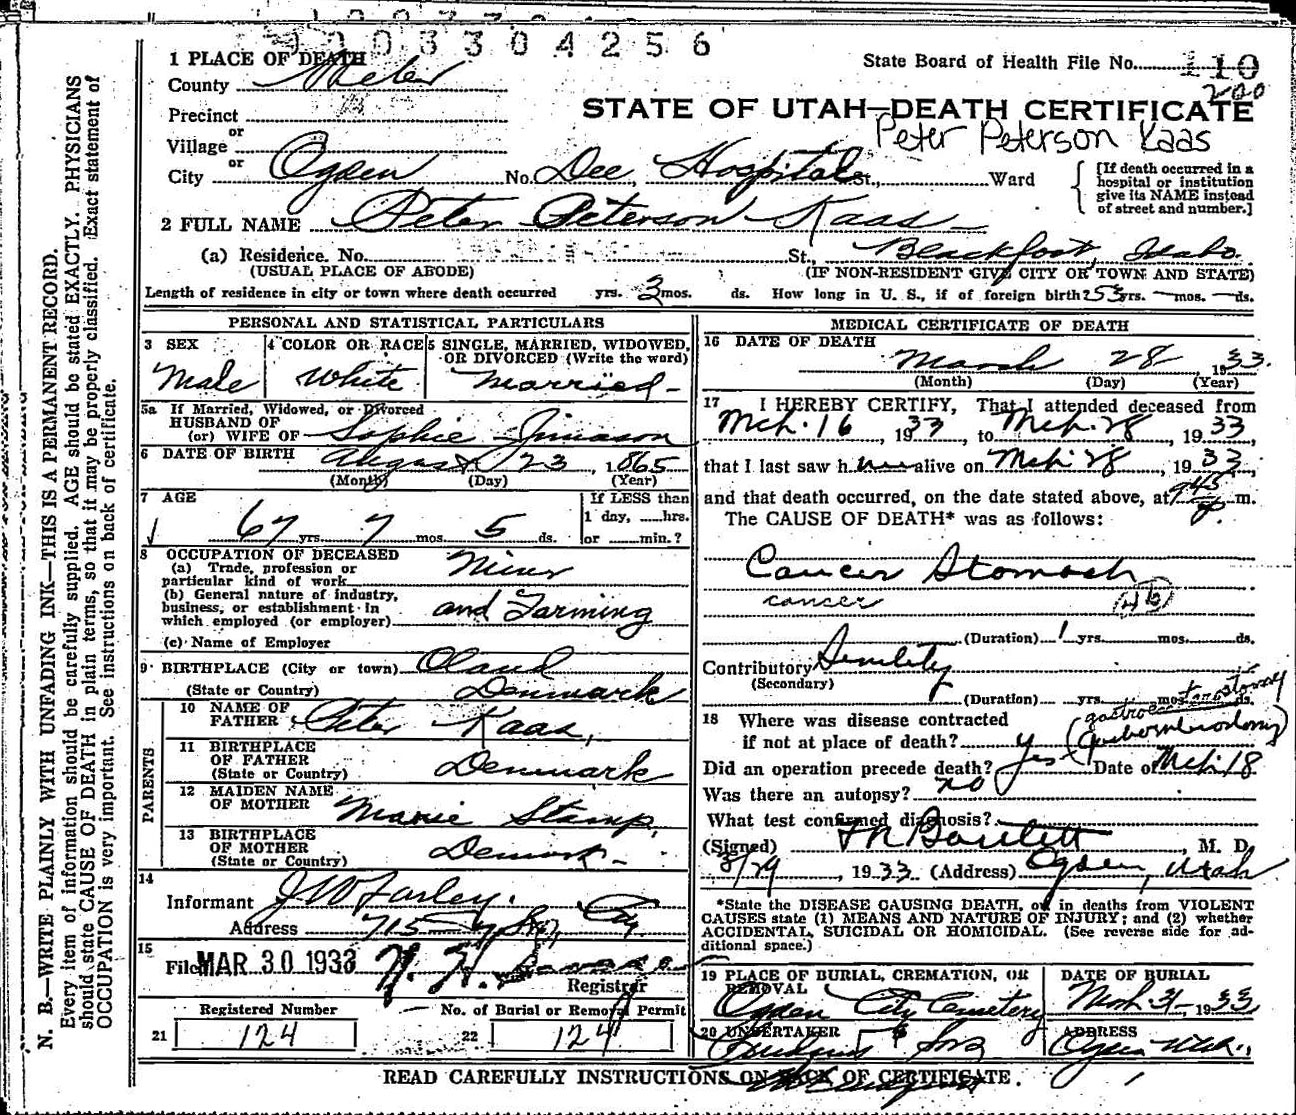 9 0 0 3 3 0 4 2 5 6
1 PLACE OF DEATH
State Board of Health File No. 110
200
County Weber
STATE OF UTAH—DEATH CERTIFICATE
Precinct
Peter Peterson Kaas
or
Village
or
City Ogden No. Dee Hospital St., Ward
[If death occurred in a hospital or institution give its NAME instead of street and number.]
2 FULL NAME Peter Peterson Kaas
(a) Residence. No. St., Blackfoot, Idaho.
(USUAL PLACE OF ABODE) (IF NON-RESIDENT GIVE CITY OR TOWN AND STATE)
Length of residence in city or town where death occurred yrs. 3 mos. ds. How long in U. S., if of foreign birth? 53 yrs. — mos. — ds.
PERSONAL AND STATISTICAL PARTICULARS
3 SEX
Male
4 COLOR OR RACE
White
5 SINGLE, MARRIED, WIDOWED, OR DIVORCED (Write the word)
Married
5a If Married, Widowed, or Divorced
HUSBAND OF
(or) WIFE OF Sophie
6 DATE OF BIRTH August 23, 1865
(Month) (Day) (Year)
7 AGE
67 yrs. 7 mos. 5 ds.
If LESS than
1 day, hrs.
or min.?
8 OCCUPATION OF DECEASED
(a) Trade, profession or
particular kind of work Miner
(b) General nature of industry,
business, or establishment in
which employed (or employer) and Farming
(c) Name of Employer
9 BIRTHPLACE (City or town) Oland
(State or Country) Denmark
PARENTS
10 NAME OF
FATHER Peter Kaas,
11 BIRTHPLACE
OF FATHER
(State or Country) Denmark
12 MAIDEN NAME
OF MOTHER Marie Stamp,
13 BIRTHPLACE
OF MOTHER
(State or Country) Denmark
14
Informant J W Farley.
Address 715
15
Filed MAR 30 1933
Registrar
Registered Number
21 124
No. of Burial or Removal Permit
22 124
MEDICAL CERTIFICATE OF DEATH
16 DATE OF DEATH
March 28 1933.
(Month) (Day) (Year)
17 I HEREBY CERTIFY, That I attended deceased from
Mch. 16, 1933, to Mch. 28, 1933,
that I last saw him alive on Mch. 28, 1933,
and that death occurred, on the date stated above, at 9 45 p m.
The CAUSE OF DEATH* was as follows:
Cancer Stomach
cancer 46
(Duration) 1 yrs. mos. ds.
Contributory Senility
(Secondary)
(Duration) yrs. mos. ds.
18 Where was disease contracted
if not at place of death?
Did an operation precede death? yes Date of Mch. 18
Was there an autopsy? no
What test confirmed diagnosis?
(Signed) Bartlett, M. D.
3/29, 1933 (Address) Ogden, Utah
*State the DISEASE CAUSING DEATH, or in deaths from VIOLENT
CAUSES state (1) MEANS AND NATURE OF INJURY; and (2) whether
ACCIDENTAL, SUICIDAL OR HOMICIDAL. (See reverse side for ad-
ditional space.)
19 PLACE OF BURIAL, CREMATION, OR
REMOVAL
Ogden City Cemetery
DATE OF BURIAL
Mch 31 - 1933
20 UNDERTAKER
& Sons
ADDRESS
Ogden Utah.
READ CAREFULLY INSTRUCTIONS ON BACK OF CERTIFICATE.
N. B.—WRITE PLAINLY WITH UNFADING INK—THIS IS A PERMANENT RECORD.
Every item of information should be carefully supplied. AGE should be stated EXACTLY. PHYSICIANS
should state CAUSE OF DEATH in plain terms, so that it may be properly classified. Exact statement of
OCCUPATION is very important. See instructions on back of certificate.